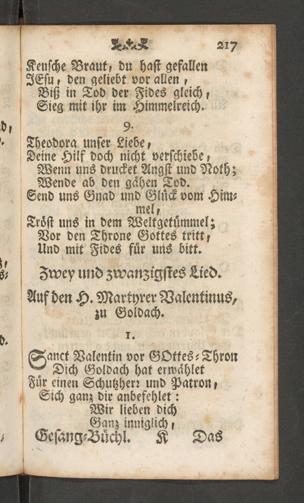 217
Keusche Braut, du hast gefallen
JEsu, den geliebt vor allen,
Biß in Tod der Fides gleich,
Sieg mit ihr im Himmelreich.
9.
Theodora unser Liebe,
Deine Hilf doch nicht verschiebe,
Wenn uns drucket Angst und Noth;
Wende ab den gähen Tod.
Send uns Gnad und Glück vom Him-
mel,
Tröst uns in dem Weltgetümmel;
Vor den Throne Gottes tritt,
Und mit Fides für uns bitt.
Zwey und zwanzigstes Lied.
Auf den H. Martyrer Valentinus,
zu Goldach.
1.
Sanct Valentin vor GOttes-Thron
Dich Goldach hat erwählet
Für einen Schutzherz und Patron,
Sich ganz dir anbefehlet:
Wir lieben dich
Ganz inniglich,
Gesang-Büchl. K Das